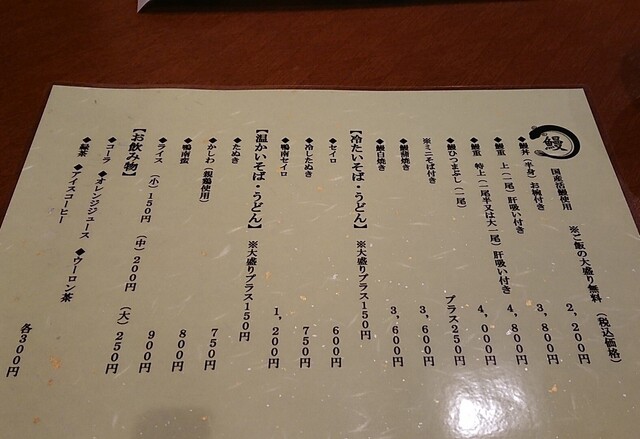 鰻
国産活鰻使用 ※ご飯の大盛り無料 (税込価格)
◆鰻丼(半身)お椀付き 2,200円
◆鰻重 上(一尾)肝吸い付き 3,800円
◆鰻重 特上(一尾半又は大一尾)肝吸い付き 4,800円
◆鰻ひつまぶし(一尾) 4,000円
※ミニそば付き プラス250円
◆鰻蒲焼き 3,600円
◆鰻白焼き 3,600円
【冷たいそば・うどん】 ※大盛りプラス150円
◆セイロ 600円
◆冷したぬき 750円
◆鴨南セイロ 1,200円
【温かいそば・うどん】 ※大盛りプラス150円
◆たぬき 750円
◆かしわ(親鶏使用) 800円
◆鴨南蛮 900円
◆ライス (小)150円 (中)200円 (大)250円
【お飲み物】
◆コーラ ◆オレンジジュース ◆ウーロン茶
◆緑茶 ◆アイスコーヒー 各300円